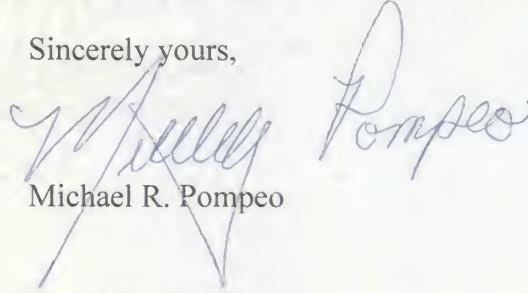 Sincerely yours,
Michael Pompeo
Michael R. Pompeo